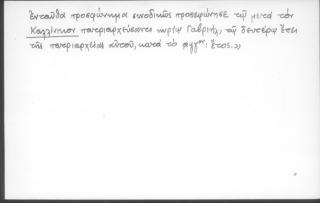 ἐνταῦθα προσφώνημα συνοδικῶς προσεφώνησε τῷ μετὰ τὸν
Καλλίνικον πατριαρχεύσαντι κυρίῳ Γαβριήλ, τῷ δευτέρῳ ἔτει
τῆς πατριαρχείας αὐτοῦ, κατὰ τὸ αψγον: ἔτος.»